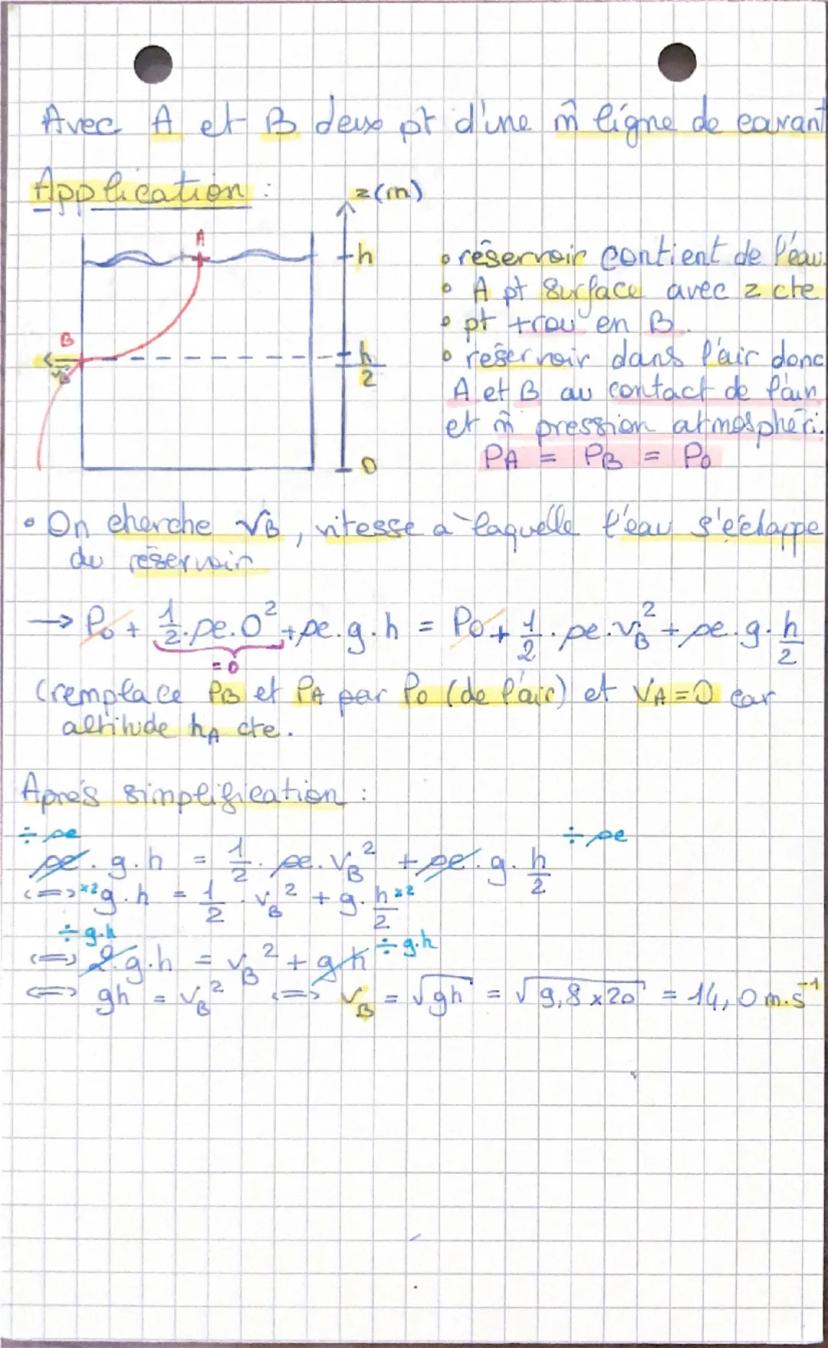 Avec A et B deux pt d'une m̂ ligne de courant
Application :
z(m)
A
h
B
v⃗B
h/2
0
• réservoir contient de l'eau.
• A pt surface avec z cte
• pt trou en B.
• réservoir dans l'air donc
A et B au contact de l'air
et m̂ pression atmosphéri.
PA = PB = P0
• On cherche vB, vitesse à laquelle l'eau s'échappe
du réservoir
→ P0 + 1/2 · ρe · 0² + ρe · g · h = P0 + 1/2 · ρe · vB² + ρe · g · h/2
= 0
(remplace PB et PA par P0 (de l'air) et VA = 0 car
altitude hA cte.
Après simplification :
÷ ρe ÷ ρe
ρe · g · h = 1/2 · ρe · vB² + ρe · g · h/2
<=> ×2 g · h = 1/2 · vB² + g · h/2 ×2
÷ g·h ÷ g·h
<=> 2 · g · h = vB² + gh
<=> gh = vB² <=> vB = √gh = √9,8 × 20 = 14,0 m·s⁻¹